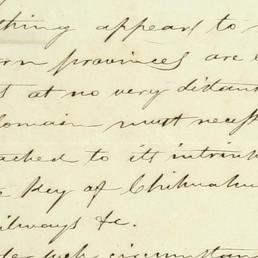 thing appears to
ern provinces are
at no very distan
domain must necess
ached to its intrin
Key of Chihuahu
ilways &c.
such circumstan